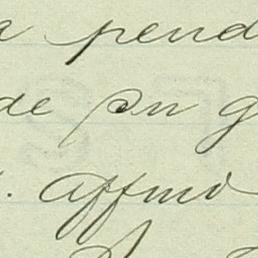 a pend
de su g
affmo